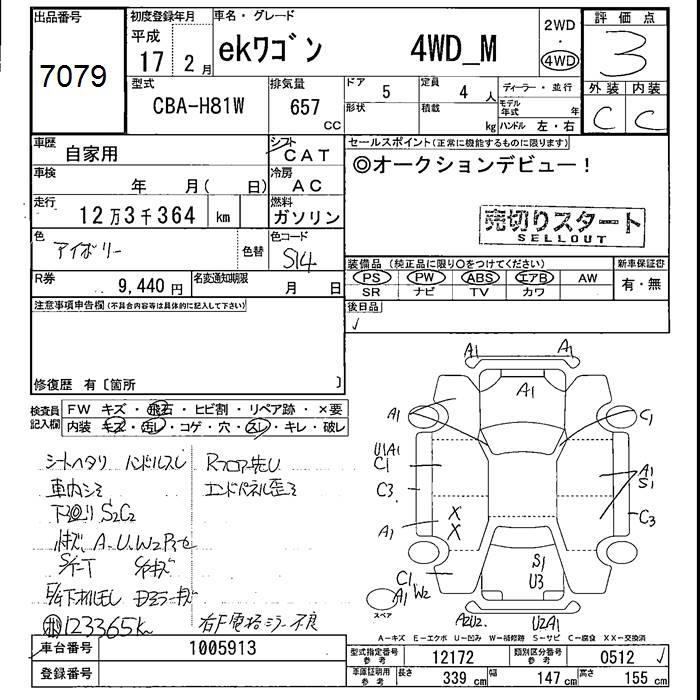 出品番号
7079
初度登録年月
平成
17 2 月
車名・グレード
ekワゴン 4WD_M
2WD
・
4WD
評価点
3
外装 内装
C C
型式
CBA-H81W
排気量
657
cc
ドア
5
形状
定員
4 人
積載
kg
ディーラー・並行
モデル年式 年
ハンドル 左・右
車歴
自家用
シフト
CAT
車検
年 月( 日)
冷房
AC
走行
12万3千364 km
燃料
ガソリン
色
アイボリー
色替
色コード
S14
R券
9,440 円
名変通知期限
月 日
セールスポイント(正常に機能するものに限ります)
◎オークションデビュー!
売切りスタート
SELLOUT
装備品(純正品に限り○をつけてください)
新車保証書
PS PW ABS エアB AW
SR ナビ TV カワ
有・無
後日品
✓
注意事項申告欄(不具合内容等は具体的に記入して下さい)
修復歴 有〔箇所 〕
検査員
記入欄
FW キズ・飛石・ヒビ割・リペア跡・×要
内装 キズ・汚レ・コゲ・穴・スレ・キレ・破レ
シートヘタリ ハンドルスレ
車内シミ
下廻り S2C2
A・U・W2
Rフロア先U
エンドパネル歪ミ
123365k
右F電格ミラー不良
A1 A1
A1
A1
C1
U1A1
C1
C3
A1
X
X
A1
S1
C3
C1
W2
A1
スペア
S1
U3
A2U2
U2A1
A―キズ E―エクボ U―凹み W―補修跡 S―サビ C―腐食 XX―交換済
車台番号
1005913
登録番号
型式指定番号
参考
12172
類別区分番号
参考
0512
車庫証明用
参考
長さ
339 cm
幅
147 cm
高さ
155 cm